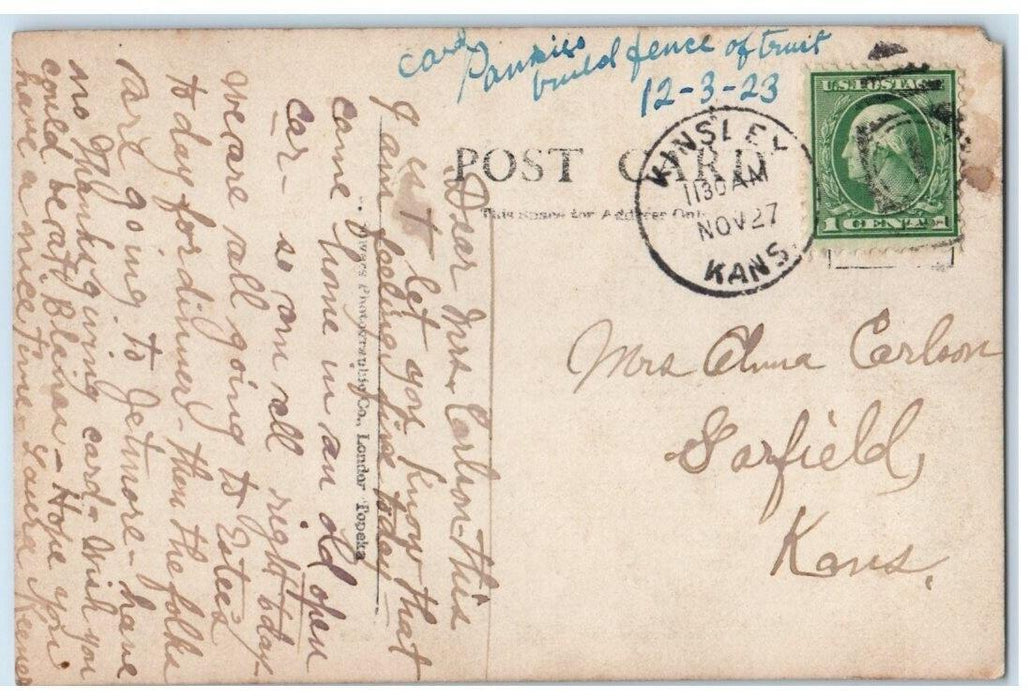 card
Pansies
build fence of trust
12-3-23
U.S. POSTAGE
1 CENT 1
KINSLEY
1130 AM
NOV 27
KANS.
POST CARD
This Space for Address Only
Photographic Co., London Topeka
Mrs Anna Carlson
Garfield,
Kans.
Dear Mrs. Carlson - This
is to let you know that
I am feeling fine today
came home in an old open
car - so am all right today.
We are all going to Estees
today for dinner - then the folks
are going to Jetmore - have
no Thanksgiving card - Wish you
could be at Blaines - Hope you
have a nice time. Laura Keener